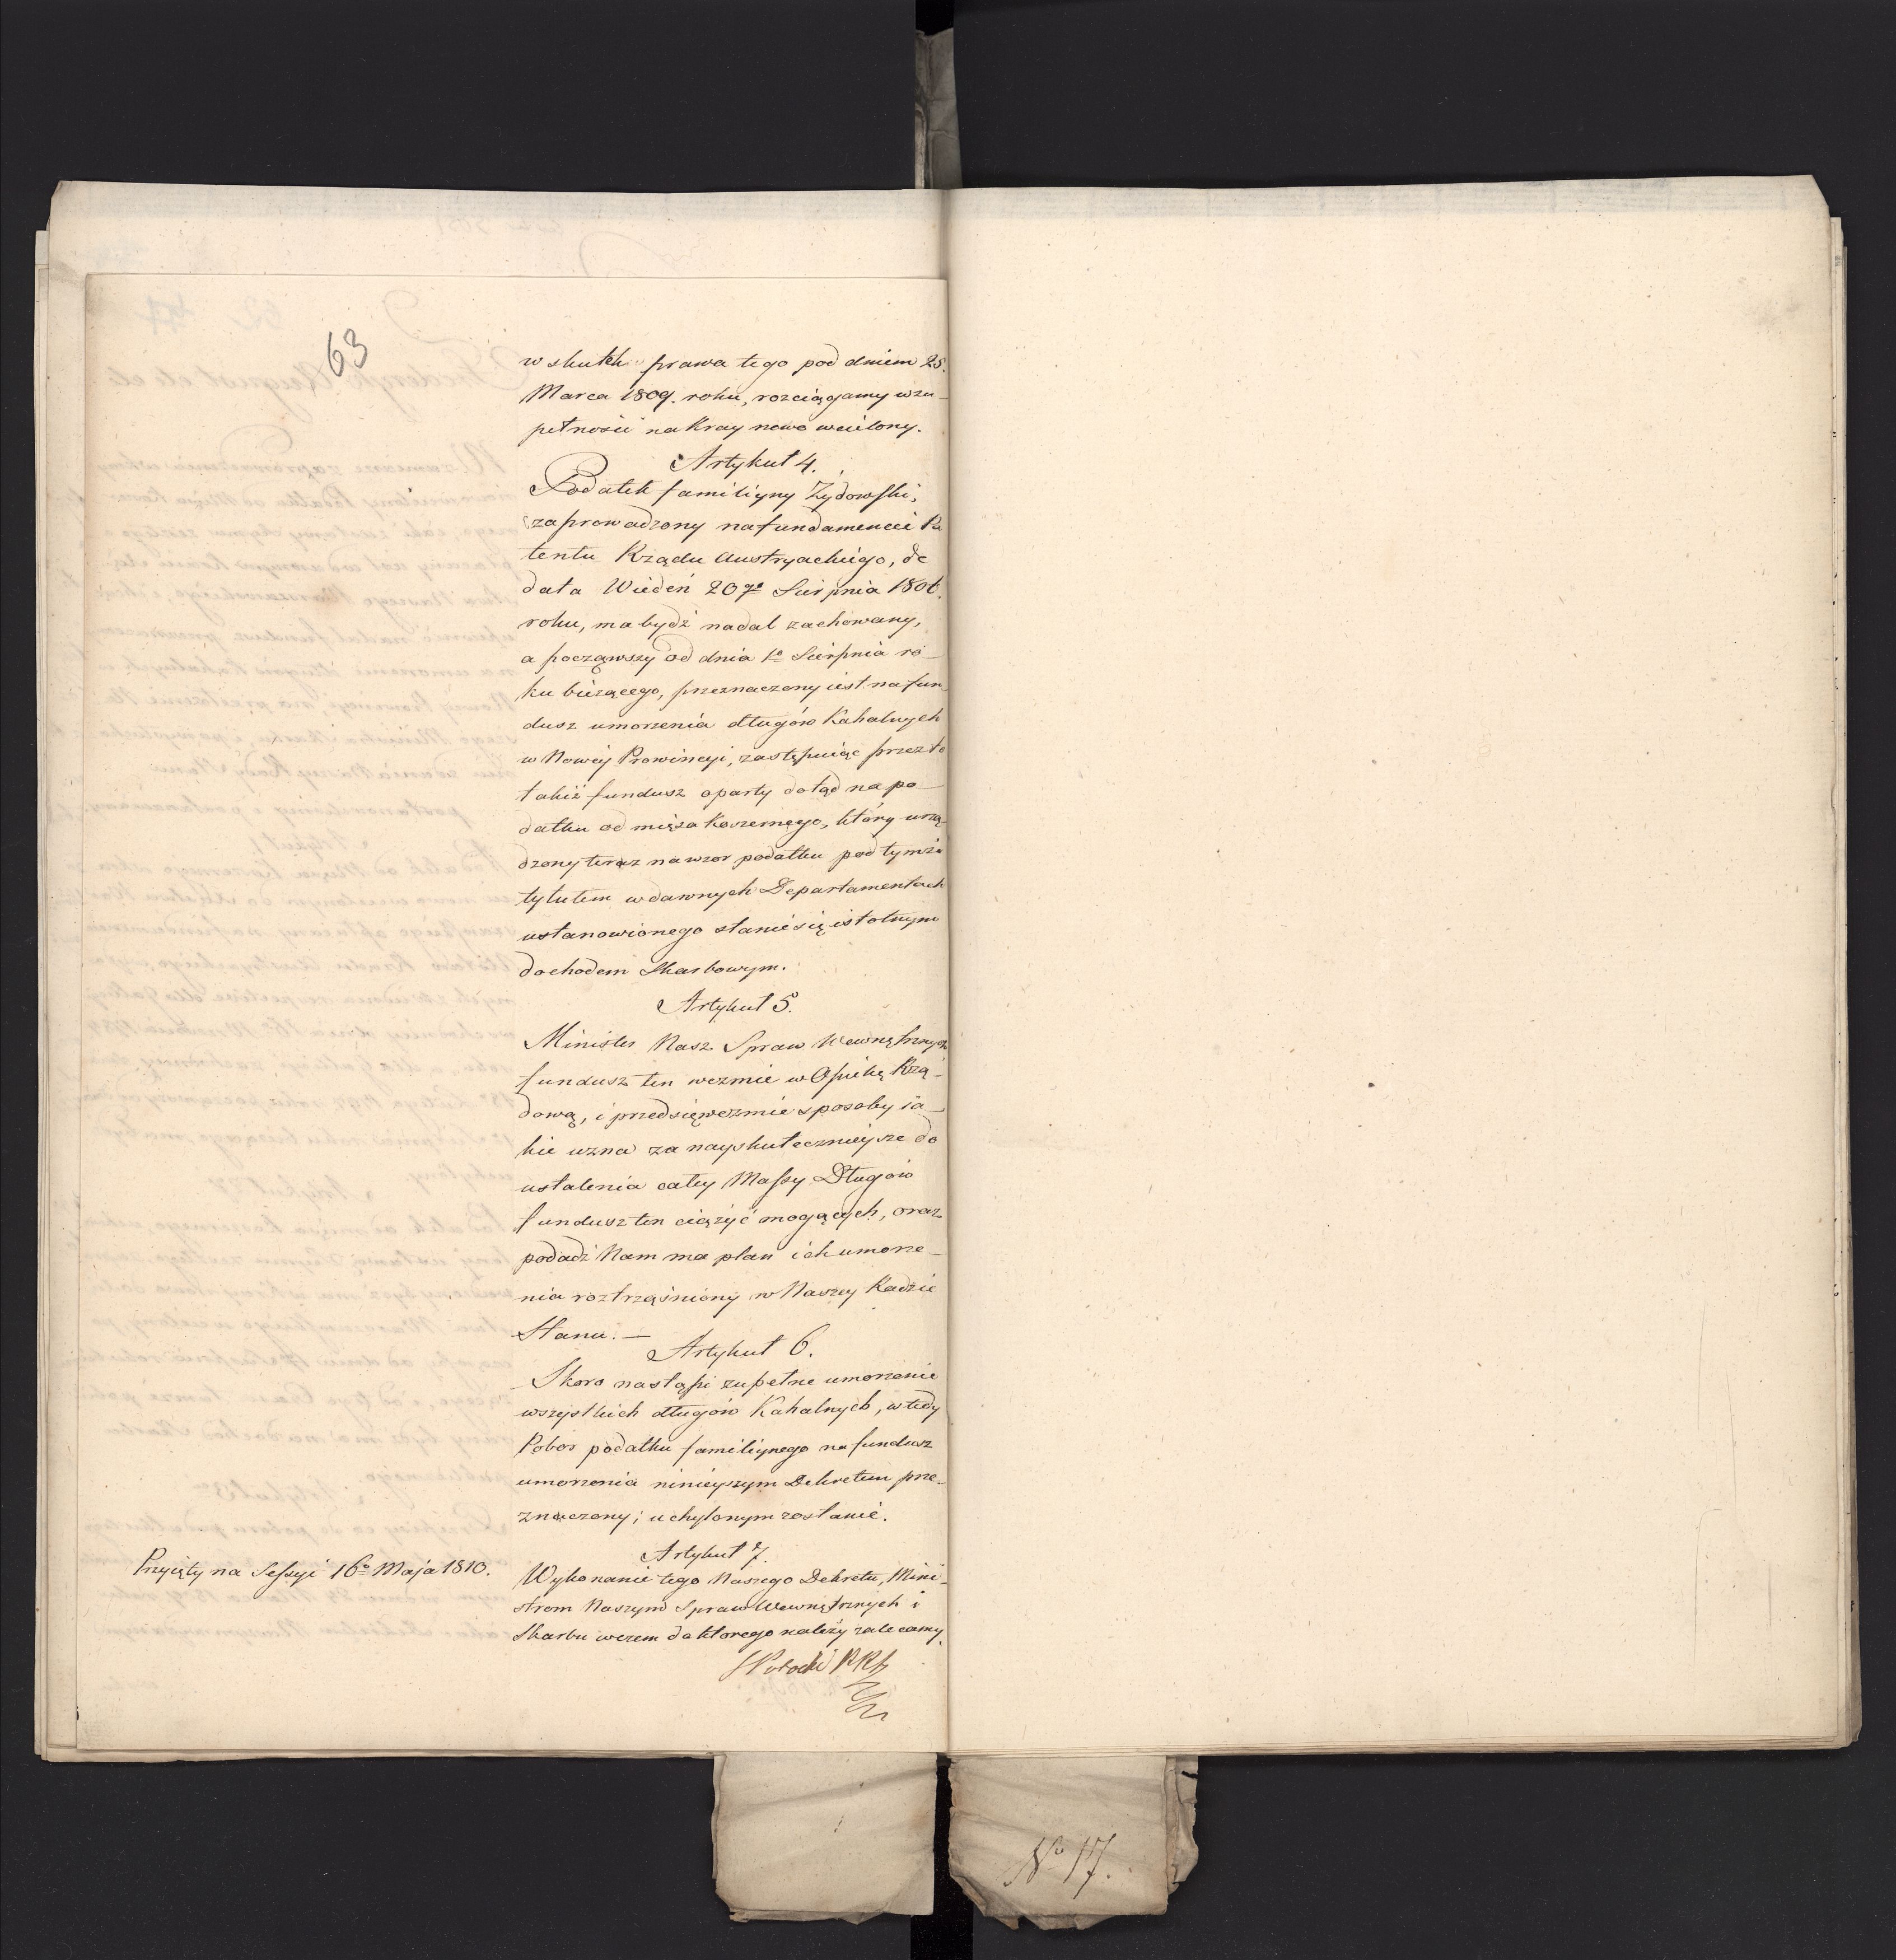 63
w skutek prawa tego pod dniem 25.
Marca 1809. roku, rozciągamy wzu-
pełności na Kray nowo wcielony.
Artykuł 4.
Podatek familiyny Żydowski,
zaprowadzony na fundamencie Pa
tentu Rządu Austryackiego, de
data Wiedeń 20go Sierpnia 1806.
roku, ma bydź nadal zachowany,
a począwszy od dnia 1o Sierpnia ro-
ku bieżącego, przeznaczony iest na fun-
dusz umorzenia długów Kahalnych
w Nowéy Prowincyi, zastępuiąc przez to
takiż fundusz oparty dotąd na po-
datku od mięsa Koszernego, który urzą-
dzony teraz na wzor podatku pod tymże
tytułem w dawnych Departamentach
ustanowionego stanie się istotnym
dochodem Skarbowym.
Artykuł 5.
Minister Nasz Spraw Wewnętrznych
fundusz ten wezmie w Opiekę Rzą-
dową, i przedsięwezmie sposoby ia-
kie uzna za nayskutecznieysze do
ustalenia całey Massy Długów
fundusz ten ciążyć mogących, oraz
podadź Nam ma plan ich umorze-
nia roztrząśniony w Naszey Radzie
Stanu. —
Artykuł 6.
Skoro nastąpi zupełne umorzenie
wszystkich długów Kahalnych, wtedy
Pobor podatku familiynego na fundusz
umorzenia ninieyszym Dekretem prze-
znaczony; uchylonym zostanie.
Artykuł 7.
Wykonanie tego Naszego Dekretu, Mini-
strom Naszym Spraw Wewnętrznych i
Skarbu wczem do ktorego należy zalecamy.
Przyięty na Sessyi 16o Maja 1810.
S Potocki PRS
No 17.